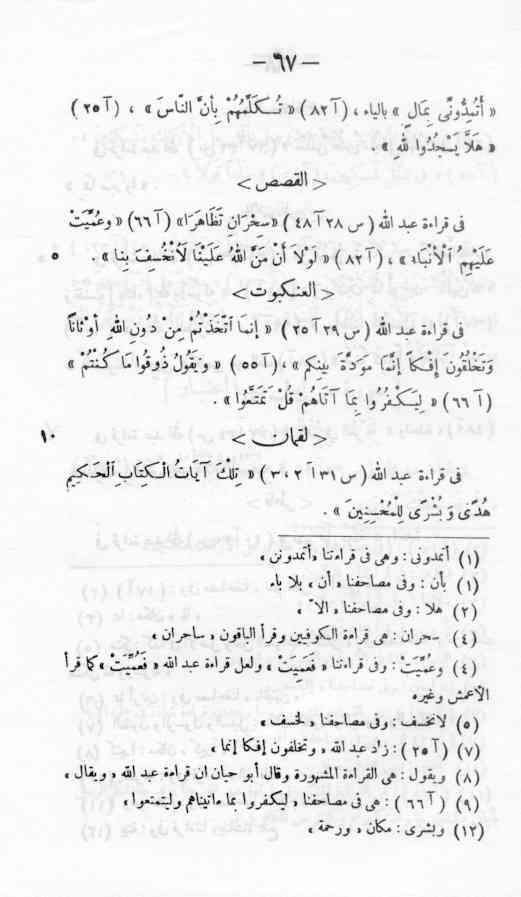 — ٦٧ —
« أَتُمِدُّونِّى بِمَالٍ » بالياء ، (آ ٨٢) « تُكَلِّمُهُمْ بِأَنَّ النَّاسَ » ، (آ ٢٥)
« هَلَّا يَسْجُدُوا لله » .
< القصص >
فى قراءة عبد الله (س ٢٨ آ ٤٨) «سِحْرَانِ تَظَاهَرَا» (آ ٦٦) « وعُمِّيَتْ
عَلَيْهِمُ ٱلْأَنْبَاء » ، (آ ٨٢) « لولا أنْ مَنَّ اللهُ عَلَيْنَا لَانْخُسِفَ بِنا » . ٥
< العنكبوت >
فى قراءة عبد الله (س ٢٩ آ ٢٥) « إنما ٱتَّخَذْتُمْ مِنْ دُونِ اللهِ أوْثاناً
وَتَخْلُقُونَ إِفْكاً إنَّمَا مَوَدَّةَ بينِكم » ، (آ ٥٥) « وَيَقُولُ ذُوقُوا مَا كُنْتُمْ »
(آ ٦٦) « لِيَكْفُرُوا بِمَا آتَاهُمْ قُلْ تَمَتَّعُوا » .
< لقمان > ١٠
فى قراءة عبد الله (س ٣١ آ ٢ ، ٣) « تِلْكَ آيَاتُ الْكِتَابِ ٱلْحَكِيمِ
هُدًى وَ بُشْرَى لِلْمُحْسِنِينَ » .
(١) أتمدونى : وهى فى قراءتنا «أتمدونن»
(١) بأن : وفى مصاحفنا « أن » بلا باء
(٢) هلا : وفى مصاحفنا « الاّ »
(٤) سحران : هى قراءة الكوفيين وقرأ الباقون « ساحران »
(٤) وعُمِّيَتْ : وفى قراءتنا « فَعَمِيَتْ » ولعل قراءة عبد الله « فَعُمِّيَتْ » كما قرأ
الاعمش وغيره
(٥) لانخسف : وفى مصاحفنا « لخسف »
(٧) (آ ٢٥) : زاد عبد الله « وتخلقون إفكا إنما »
(٨) ويقول : هى القراءة المشهورة وقال أبو حيان ان قراءة عبد الله « ويقال »
(٩) (آ ٦٦) : هى فى مصاحفنا « ليكفروا بما ءاتيناهم وليتمتعوا »
(١٢) وبشرى : مكان « ورحمة »